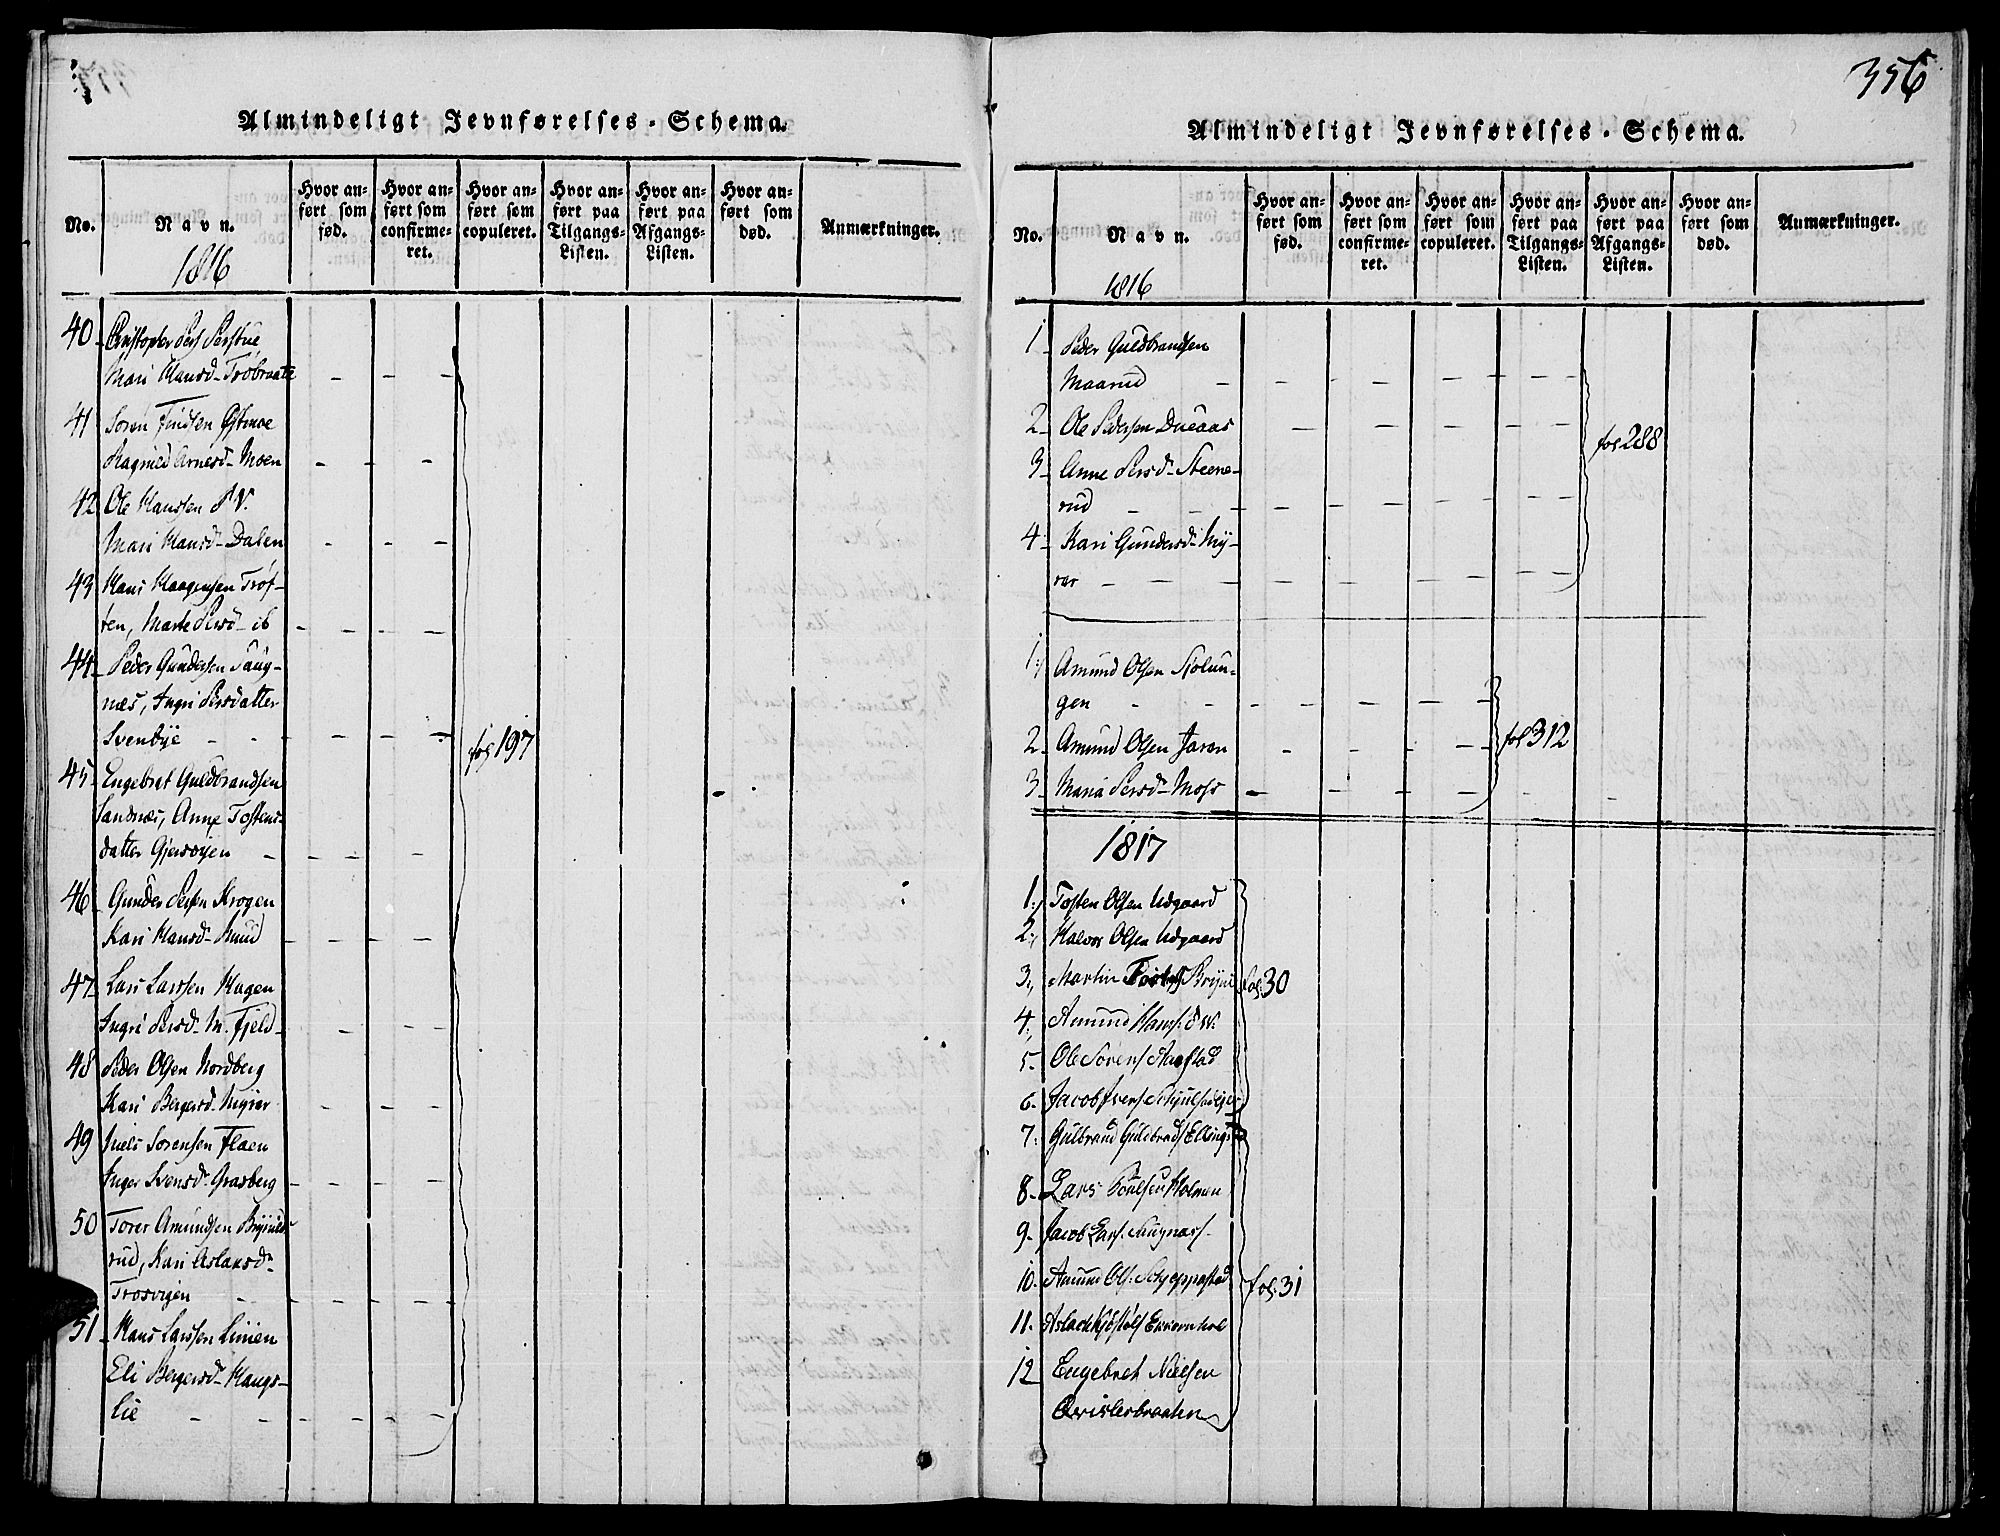 Almindeligt Jevnførelses-Schema.
No.
Navn.
Hvor anført som fød.
Hvor anført som confirmeret.
Hvor anført som copuleret.
Hvor anført paa Tilgangs-Listen.
Hvor anført paa Afgangs-Listen.
Hvor anført som død.
Anmærkninger.
1816
40
Mari Hansd-
41 Soren Findsen Østmoe
Ragnild Arnesd- Moen
42 Ole Hanssen
Mari Hansd- Dalen
43 Hans Haagensen Trøf-
ten, Marte Persd- ib
44- Peder Gundersen Saug-
næs, Ingri Persdatter
Svenbÿe
fol 197
45- Engebret Guldbrandsen
Sandnæs, Anne Tostens-
datter Gjersøyen
46- Gunder Persen Krogen
Kari Hansd- Ruud
47- Lars Larssen Hagen
Ingri Persd- M. Fjeld
48 Peder Olsen Nordberg
Kari Bergersd- Myrer
49 Niels Sorensen Flaen
Inger Svensd- Grasberg
50 Torer Amundsen
rud, Kari Aslaksd-
Trosvigen
51- Hans Larssen Linien
Eli Bergersd- Haugs-
lie
356
Almindeligt Jevnførelses-Schema.
No.
Navn.
Hvor anført som fød.
Hvor anført som confirmeret.
Hvor anført som copuleret.
Hvor anført paa Tilgangs-Listen.
Hvor anført paa Afgangs-Listen.
Hvor anført som død.
Anmærkninger.
1816
1- Peder Guldbrandsen
Maarud
2- Ole Pedersen Dueaas
fol 288
3- Anne Persd- Steene-
rud
4- Kari Gundersd- Mÿ-
rer
1 Amund Olsen Sjolun-
gen
2- Amund Olsen Jaren
fol 312
3- Maria Persd- Moss
1817
1 Tosten Olsen Udgaard
2 Halvor Olsen Udgaard
3 Martin
fol. 30
4 Amund Hans.
5- Ole Sorens
6- Jacob Ivers
7- Gulbrand Guldbrands
8- Lars Poulsen Holmen
9- Jacob Lars. Saugnæss
10- Amund Ols. Schjeppestad
fol. 31
11- Aslach
12 Engebret Nielsen
Qvislerbraaten